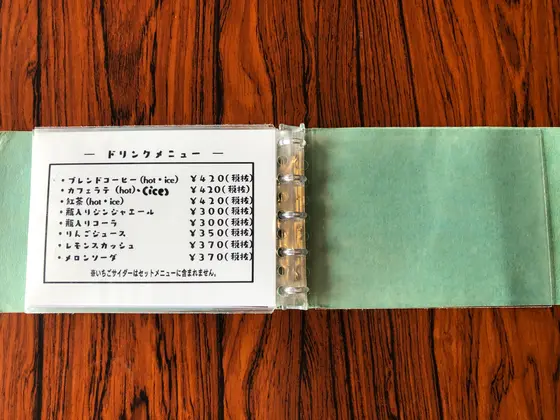 ― ドリンクメニュー ―
・ブレンドコーヒー(hot・ice) ¥420(税抜)
・カフェラテ(hot)・(ice) ¥420(税抜)
・紅茶(hot・ice) ¥420(税抜)
・瓶入りジンジャエール ¥300(税抜)
・瓶入りコーラ ¥300(税抜)
・りんごジュース ¥350(税抜)
・レモンスカッシュ ¥370(税抜)
・メロンソーダ ¥370(税抜)
※いちごサイダーはセットメニューに含まれません。